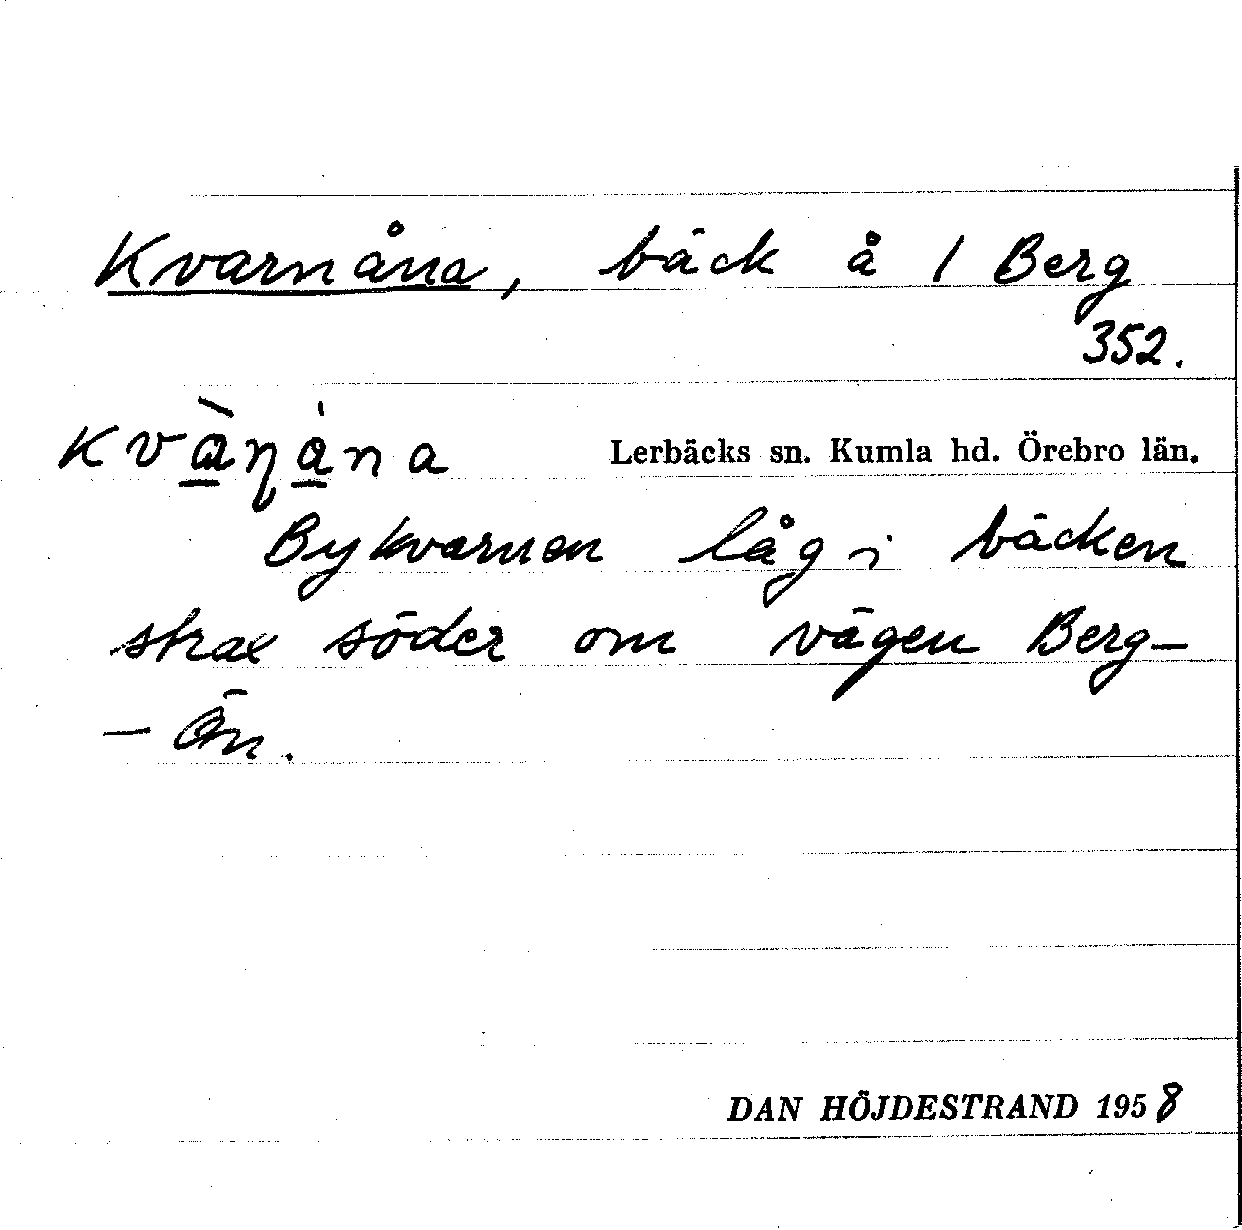 Kvarnåna, bäck å 1 Berg
352.
kvànána
Lerbäcks sn. Kumla hd. Örebro län.
Bykvarnen låg i bäcken
strax söder om vägen Berg-
- Ön.
DAN HÖJDESTRAND 1958